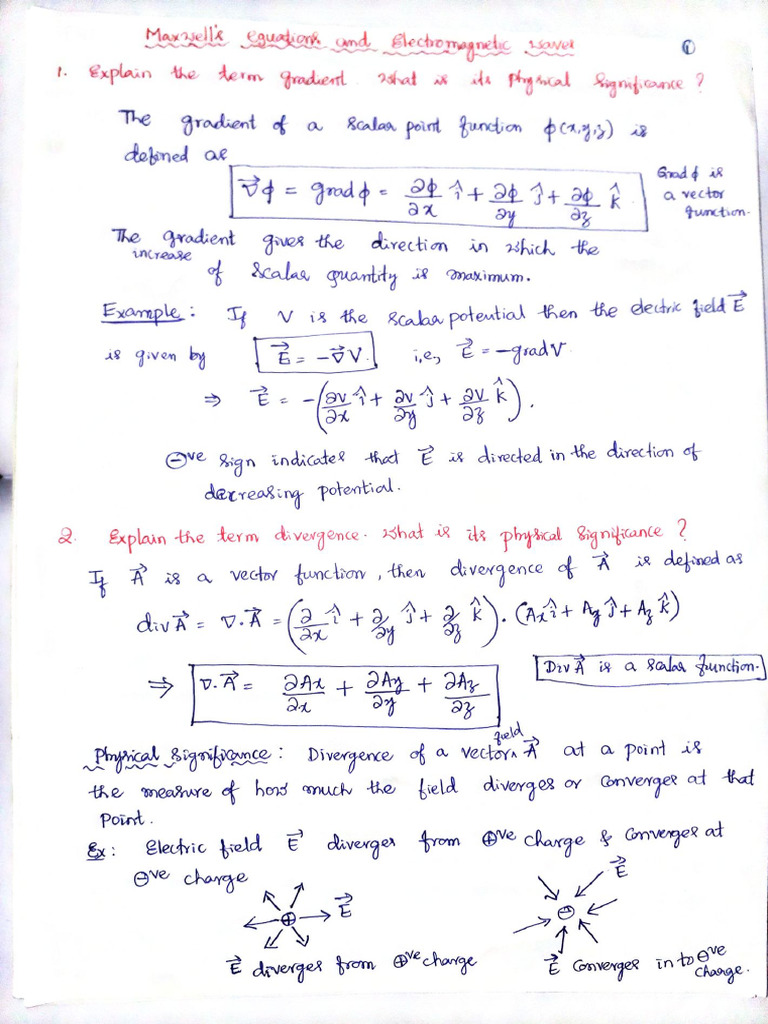 Maxwell's equations and Electromagnetic waves
①
1. Explain the term gradient. What is its physical significance?
The gradient of a scalar point function ϕ(x,y,z) is
defined as
∇⃗ϕ = gradϕ = ∂ϕ/∂x î + ∂ϕ/∂y ĵ + ∂ϕ/∂z k̂
Grad ϕ is
a vector
function.
The gradient gives the direction in which the
increase
of scalar quantity is maximum.
Example: If V is the scalar potential then the electric field E⃗
is given by E⃗ = -∇⃗V. i.e, E⃗ = -gradV
⇒ E⃗ = -(∂V/∂x î + ∂V/∂y ĵ + ∂V/∂z k̂).
⊖ve sign indicates that E⃗ is directed in the direction of
decreasing potential.
2. Explain the term divergence. What is its physical significance?
If A⃗ is a vector function, then divergence of A⃗ is defined as
div A⃗ = ∇.A⃗ = (∂/∂x î + ∂/∂y ĵ + ∂/∂z k̂).(Ax î + Ay ĵ + Az k̂)
Div A⃗ is a scalar function.
⇒ ∇.A⃗ = ∂Ax/∂x + ∂Ay/∂y + ∂Az/∂z
Physical significance: Divergence of a vector field A⃗ at a point is
the measure of how much the field diverges or converges at that
point.
Ex: Electric field E⃗ diverges from ⊕ve charge & converges at
⊖ve charge
⊕ E⃗
⊖ E⃗
E⃗ diverges from ⊕ve charge
E⃗ converges in to ⊖ve
charge.